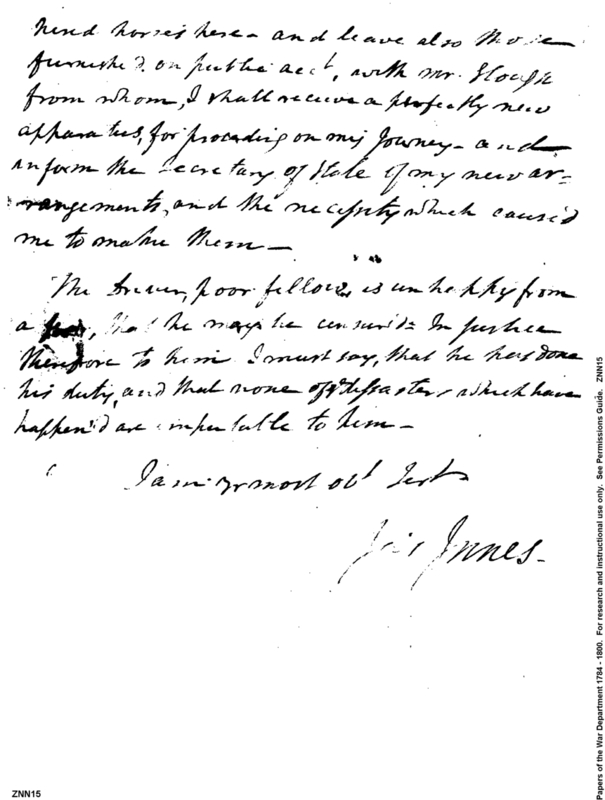 hired horses here - and leave also those
furnished on public acct, with mr. Hough
from whom, I shall receive a perfectly new
apparatus, for proceeding on my Journey - and
inform the Secretary of State of my new ar=
rangements, and the necessity which caused
me to make them -
The Driver, poor fellow, is unhappy from
a fear, that he may be censured. In justice
therefore to him I must say, that he has done
his duty, and that none of ye disasters which have
happen'd are imputable to him -
I am yr most obt Servt
Jas Innes -
Papers of the War Department 1784 - 1800. For research and instructional use only. See Permissions Guide. ZNN15
ZNN15